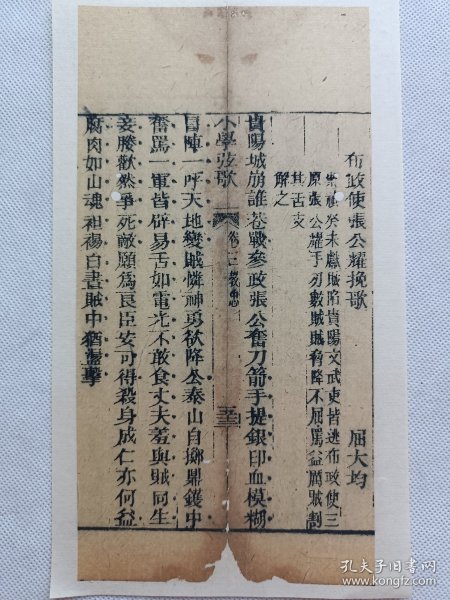 布政使張公耀挽歌 屈大均
崇禎癸未獻賊陷貴陽文武吏皆逃布政使三
原張公耀手刃數賊賊脅降不屈罵益厲賊割
其舌支
解之
貴陽城崩誰巷戰參政張公奮刀箭手提銀印血模糊
小學弦歌 卷三 教忠 五三
冒陣一呼天地變賊憐神勇欲降公泰山自擲鼎鑊中
奮罵一軍皆辟易舌如電光不敢食丈夫羞與賊同生
妾媵歡然爭死敵願為良臣安可得殺身成仁亦何益
腐肉如山魂袒裼白晝賊中猶搏擊
孔夫子旧书网
www.kongfz.com